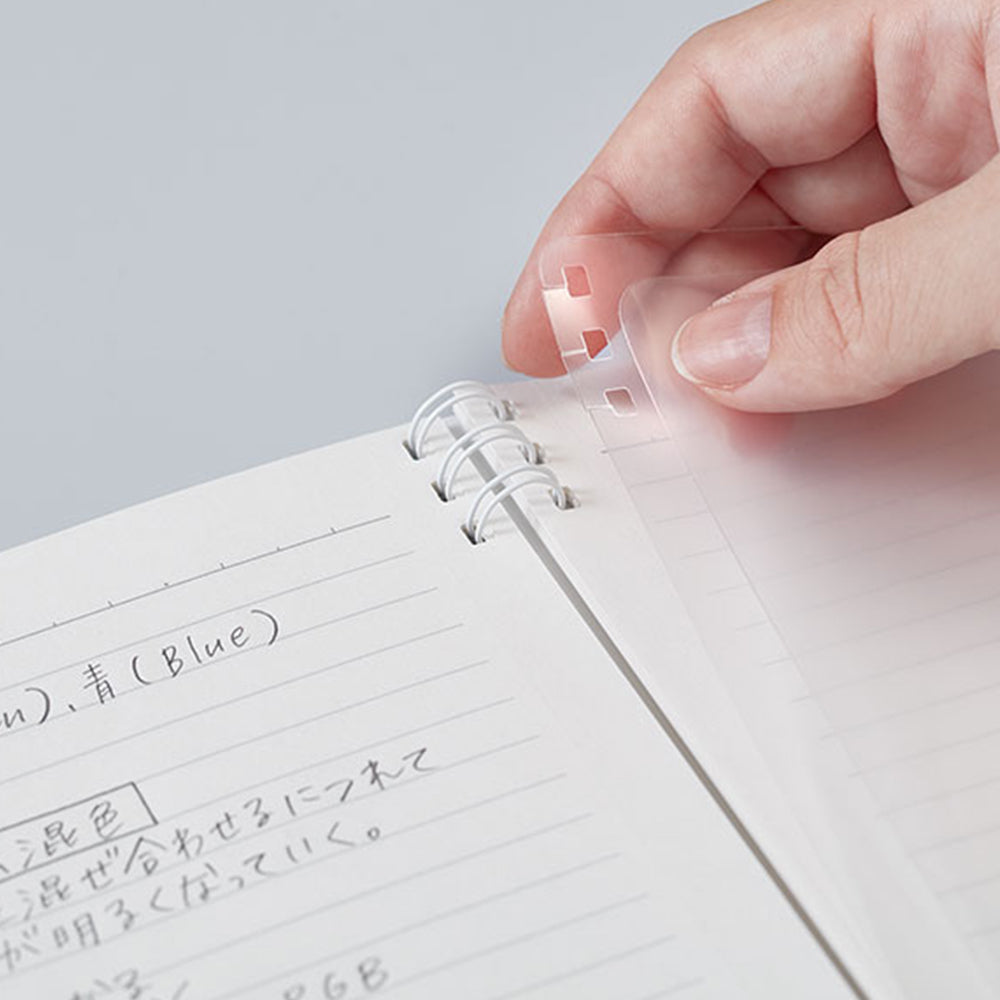 )、青(Blue)
混色
混ぜ合わせるにつれて
が明るくなっていく。
RGB